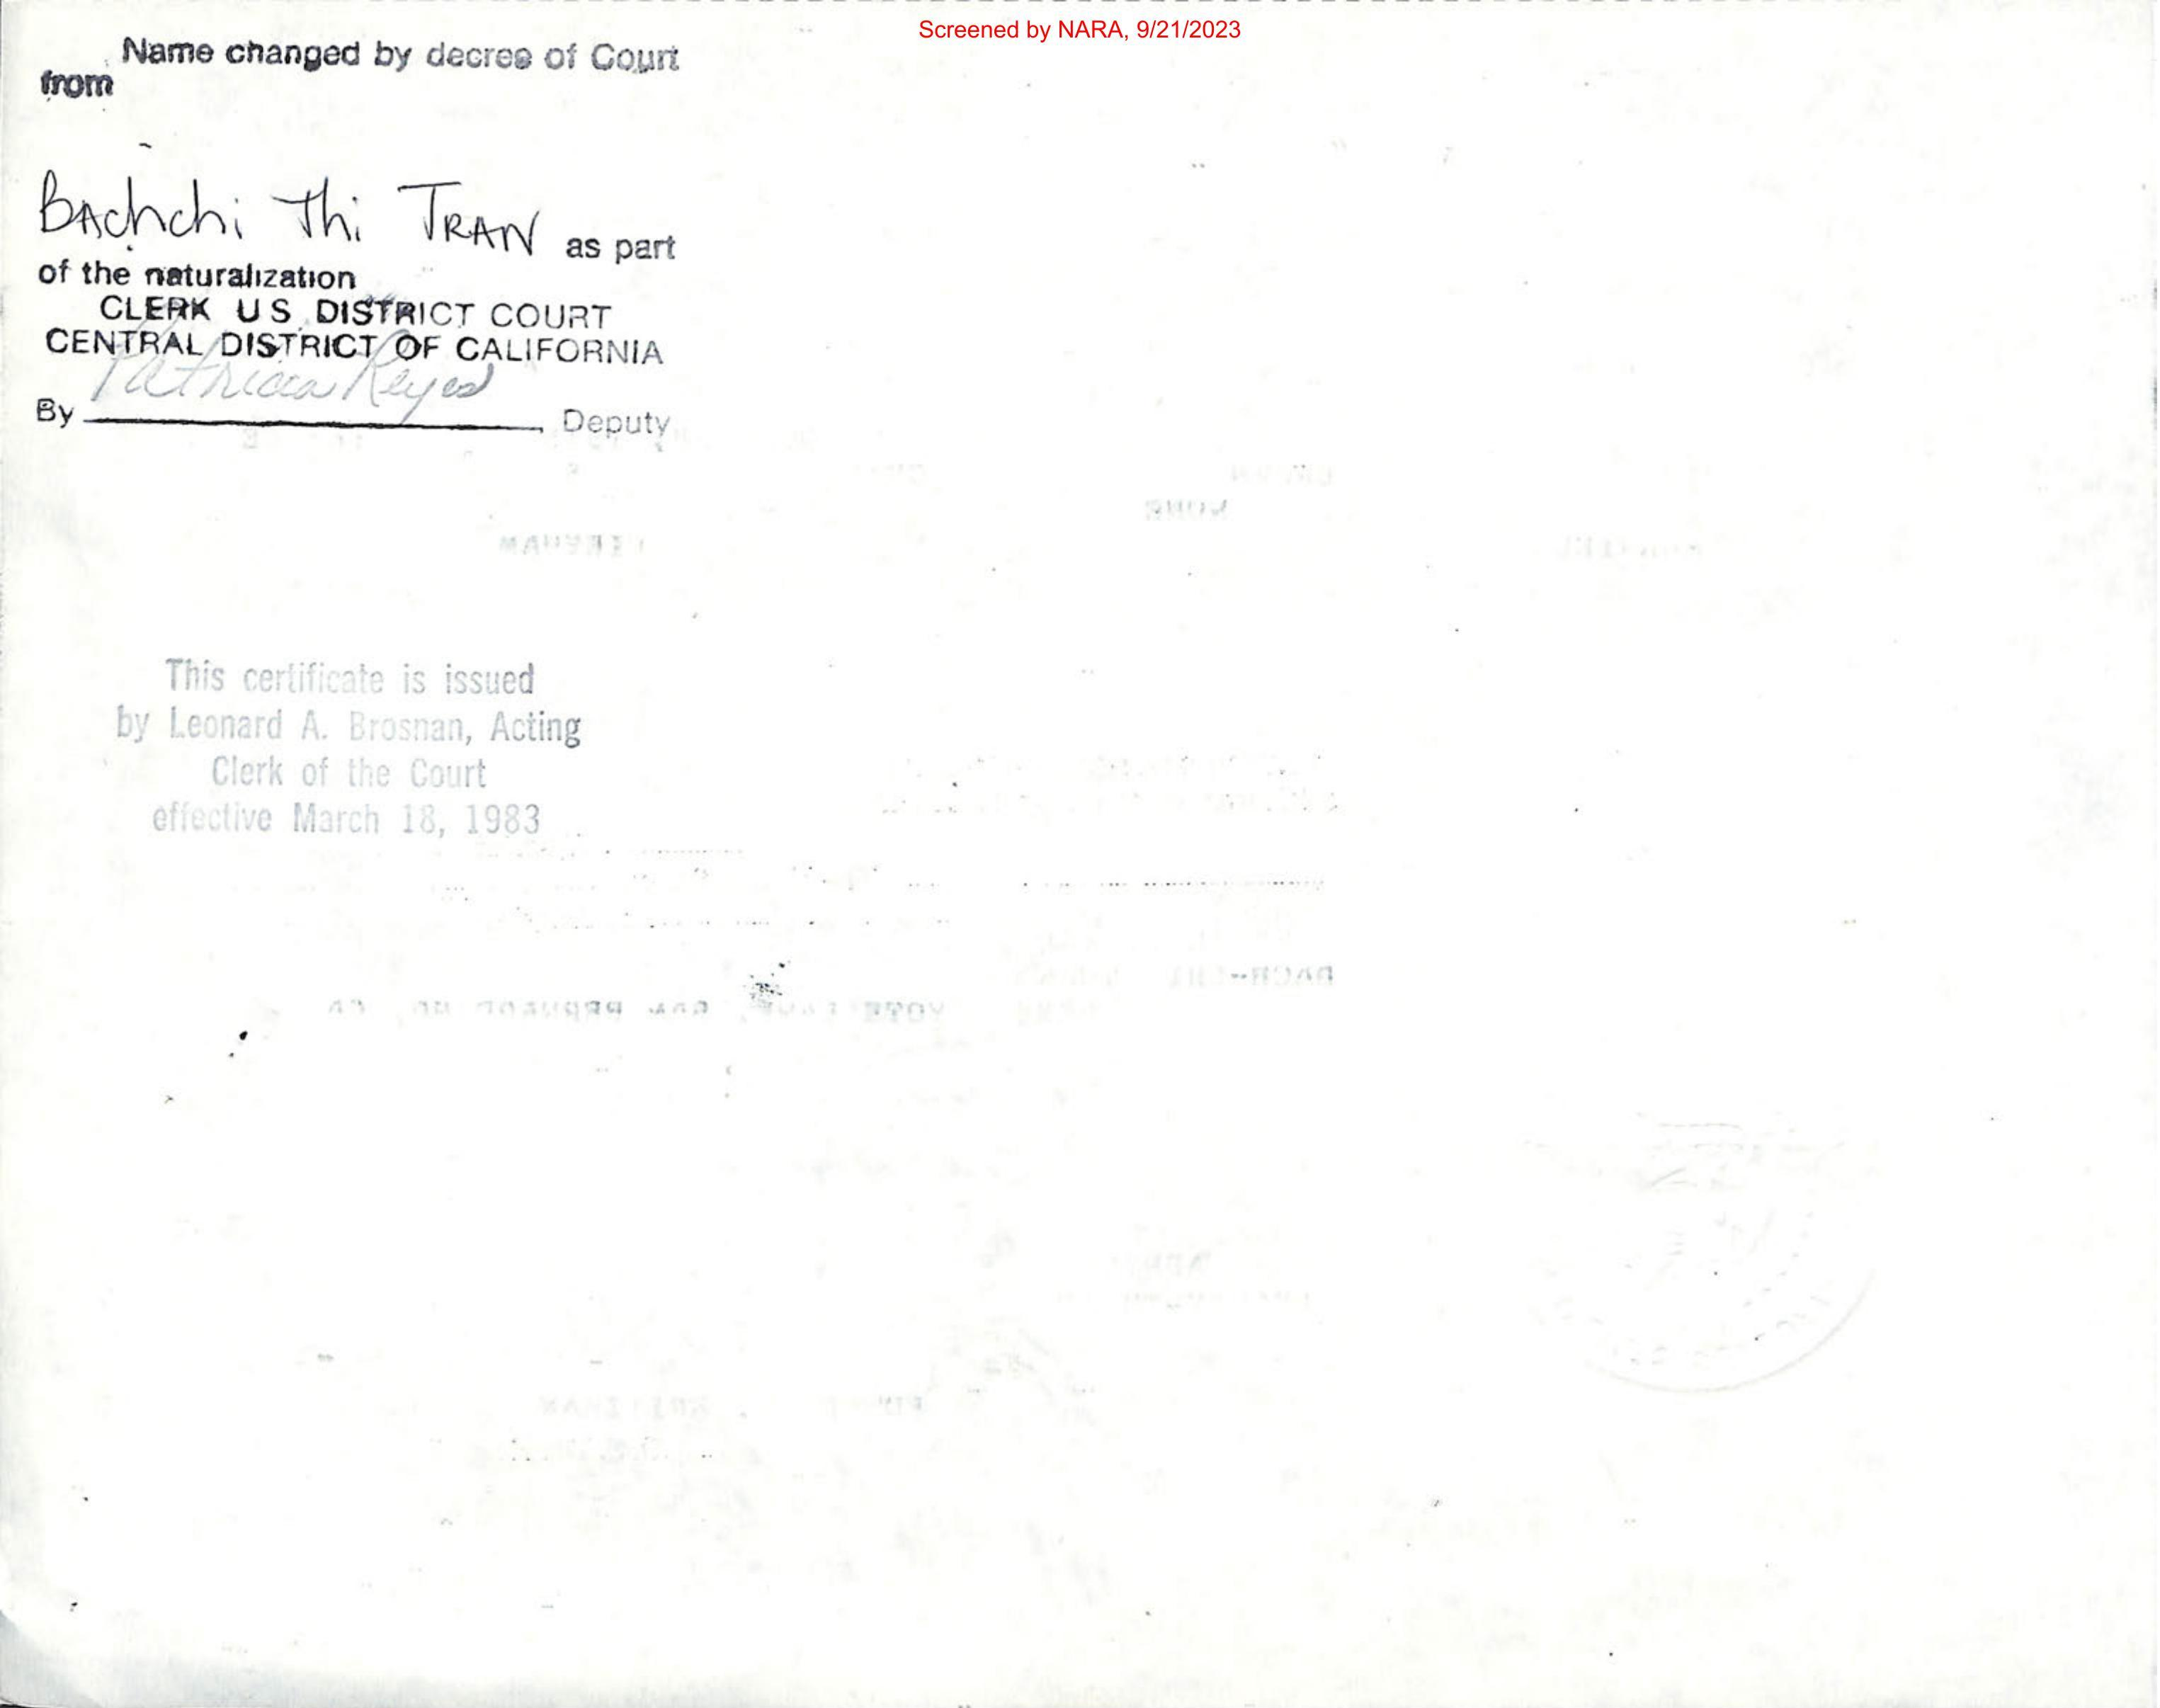 Screened by NARA, 9/21/2023
Name changed by decree of Court
from
Bachchi Thi TRAN as part
of the naturalization
CLERK U S DISTRICT COURT
CENTRAL DISTRICT OF CALIFORNIA
Patricia Reyes
By , Deputy
This certificate is issued
by Leonard A. Brosnan, Acting
Clerk of the Court
effective March 18, 1983